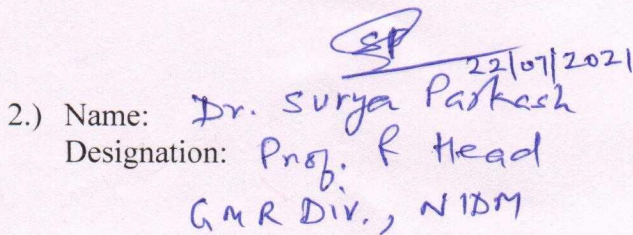 SP
22/07/2021
2.) Name: Dr. Surya Parkash
Designation: Prof. & Head
GMR Div., NIDM